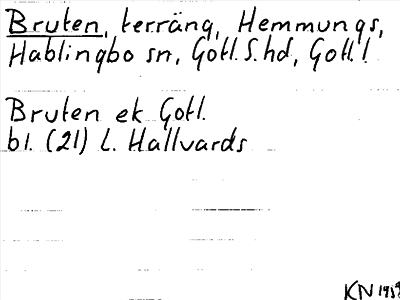 Bruten, terräng, Hemmungs,
Hablingbo sn, Gotl. S. hd, Gotl. l.
Bruten ek Gotl.
bl. (21) L. Hallvards
KN